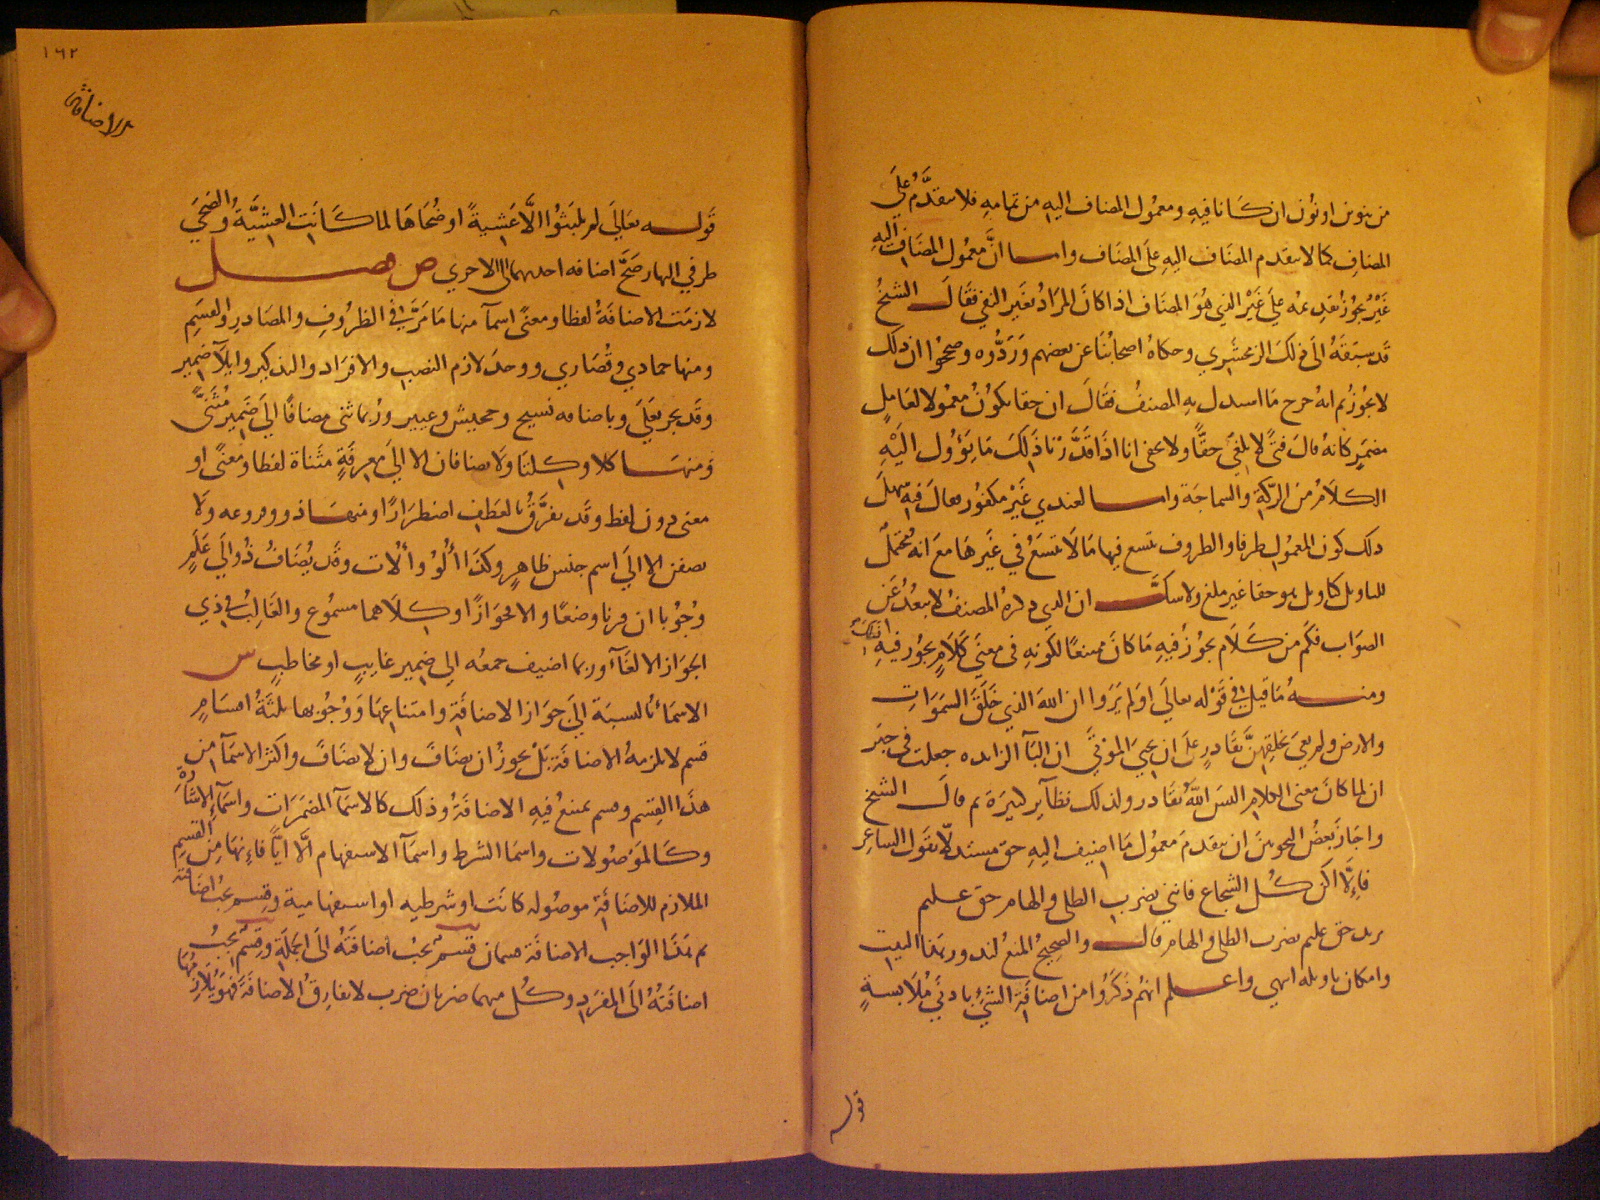 من تنوين او نون ان كانا فيه ومعمول المضاف اليه من تمامه فلا يتقدم على
المضاف كما لا يتقدم المضاف اليه على المضاف واما ان معمول المضاف اليه
غير يجوز تقديمه على غير الذي هو المضاف اذا كان المراد بغير النفي فقال الشيخ
قد سبقه الى ذلك الزمخشري وحكاه اصحابنا عن بعضهم وردوه وصححوا ان ذلك
لا يجوز ثم انه خرج ما استدل به المصنف فقال ان حقا يكون معمولا لعامل
مضمر كانه قال فتى لا يلغي حقا ولا يخفى انا اذا قدرنا ذلك ما يؤول اليه
الكلام من الركة والسماجة واما لعندي غير مكفور فقال فيه سهل
ذلك كون المعمول ظرفا والظروف يتسع فيها ما لا يتسع في غيرها مع انه محتمل
للتاويل كما ول هو حقا غير ملغ ولا شك ان الذي ذكره المصنف لا يبعد عن
الصواب فكم من كلام يجوز فيه ما كان ممتنعا لكونه في معنى كلام يجوز فيه ذلك
ومنه ما قيل في قوله تعالى اولم يروا ان الله الذي خلق السموات
والارض ولم يعي بخلقهن بقادر على ان يحيي الموتى ان الباء الزائده جعلت في خبر
ان لما كان معنى الكلام اليس الله بقادر ولذلك نظاير كثيرة ثم قال الشيخ
واجاز بعض النحويين ان يتقدم معمول ما اضيف اليه حق مستدلا بقول الشاعر
فان لا اكن كل الشجاع فانني بضرب الطلى والهام حق عليم
يريد حق عليم بضرب الطلى والهام قال والصحيح المنع لندور هذا البيت
وامكان تاويله انتهى واعلم انهم ذكروا من اضافة الشئ بادنى ملابسة
قوله
١٦٢
الاضافة
قوله تعالى لم يلبثوا الا عشية او ضحاها لما كانت العشية والضحى
طرفي النهار صح اضافه احدهما الى الاخرى ص فصل
لازمت الاضافة لفظا ومعنى اسماء منها ما مر في الظروف والمصادر والقسم
ومنها حمادي وقصاري ووحد لازم النصب والافراد والتذكير وايلاء ضمير
وقد يجر بعلى وباضافه نسيج وجحيش وعيير وربما ثنى مضافا الى ضمير مثنى
ومنها كلا وكلتا ولا يضافان الا الى معرفة مثناة لفظا ومعنى او
معنى دون لفظ وقد يفرق بالعطف اضطرارا ومنها ذو وفروعه ولا
يضفن الا الى اسم جنس ظاهر وكذا أولو وألات وقد يضاف ذو الى علم
وجوبا ان قرنا وضعا والا فجوازا وكلاهما مسموع والغالب في ذي
الجواز الالغاء وربما اضيف جمعه الى ضمير غايب او مخاطب س
الاسماء بالنسبة الى جواز الاضافة وامتناعها ووجوبها ثلثة اقسام
قسم لا تلزمه الاضافة بل يجوز ان يضاف وان لا يضاف واكثر الاسماء من
هذا القسم وقسم يمتنع فيه الاضافة وذلك كالاسماء المضمرات واسماء الاشارة
وكالموصولات واسما الشرط واسماء الاستفهام الا ايا فانها من القسم
الملازم للاضافة موصوله كانت او شرطيه او استفهامية وقسم يجب اضافته
ثم هذا الواجب الاضافة قسمان قسم يجب اضافته الى الجملة وقسم يجب
اضافته الى المفرد وكل منهما ضربان ضرب لا تفارق الاضافة فهو يلازمها